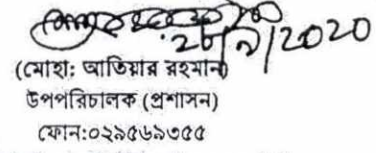 ২৮/৯/2020
(মোহা: আতিয়ার রহমান)
উপপরিচালক (প্রশাসন)
ফোন:০২৯৫৬৯৩৫৫